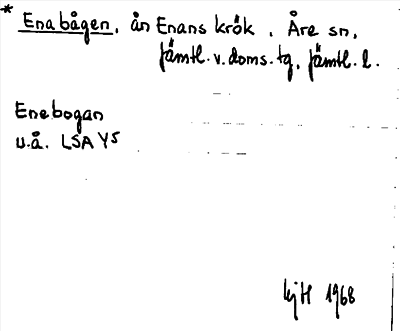 * Enabågen, ån Enans krök, Åre sn,
Jämtl. v. doms. tg, Jämtl. l.
Enebogan
u.å. LSA Y5
1968